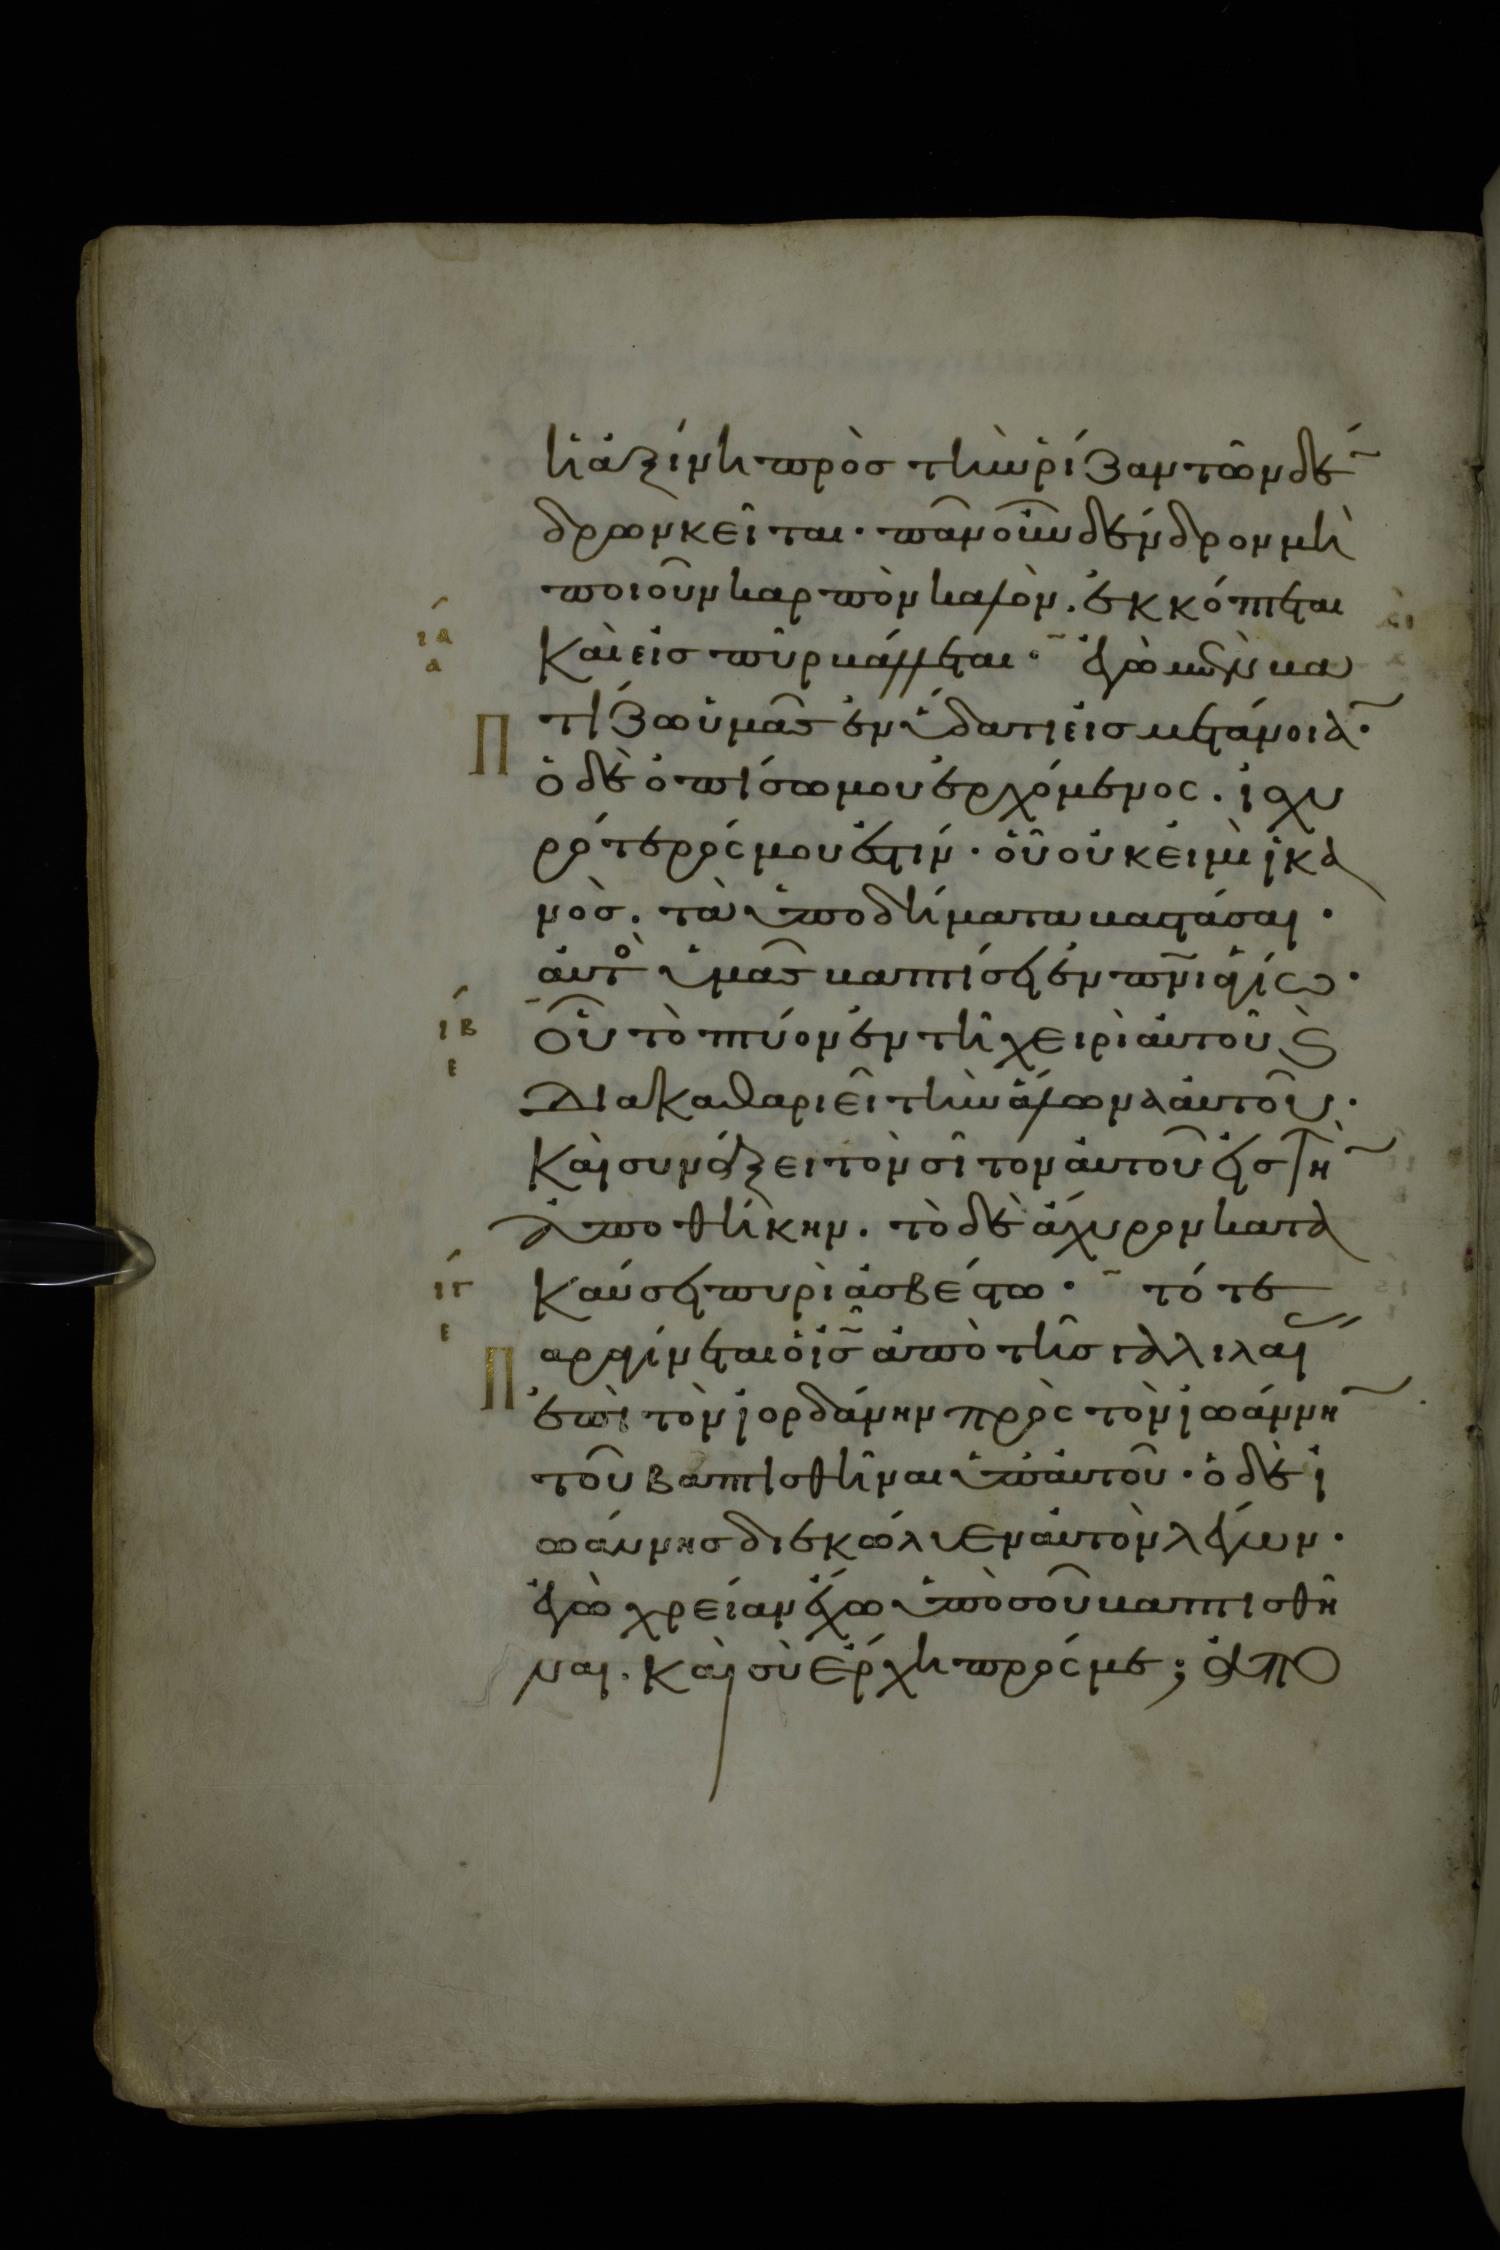 ἡ ἀξίνη πρὸσ τὴν ῥίζαν τῶν δέ̄
δρων κεῖται· πᾶν οὖν δένδρον μὴ
ποιοῦν καρπὸν καλὸν. ἐκκόπτεται
ια
καὶ εἰσ πῦρ βάλλεται· ἐγὼ μὲν βα
α
πτίζω ὑμᾶσ ἐν ὕδατι εἰσ μετάνοιᾱ·
ὁ δὲ ὀπίσω μου ἐρχόμενος. ἰσχυ
ρότερός μου ἐστιν· οὗ οὐκ εἰμὶ ἱκα
νὸσ. τὰ ὑποδήματα βαστάσαι·
αὐτὸ ὑμᾶσ βαπτίσει ἐν πν̄ι ἁγίω·
ιβ
οὗ τὸ πτύον ἐν τῆ χειρὶ αὐτοῦ ϗ
ε
διακαθαριεῖ τὴν ἅλωνα αὐτοῦ·
καὶ συνάξει τὸν σῖτον αὐτοῦ εἰσ τὴ̄
ἀποθήκην. τὸ δὲ ἄχυρον κατα
ιγ
καύσει πυρὶ ἀσβέστω· τότε
ε
παραγίνεται ὁ ι̅σ̅ ἀπὸ τῆσ γαλιλαι
ἐπὶ τὸν ἰορδάνην πρὸς τὸν ἰωάννη̄
τοῦ βαπτισθῆναι ὑπ' αὐτοῦ· ὁ δὲ ἰ
ωάννησ διεκώλυεν αὐτὸν λέγων·
ἐγὼ χρείαν ἔχω ὑπὸ σοῦ βαπτισθῆ
ναι. καὶ σὺ ἔρχη πρός με; ἀπο